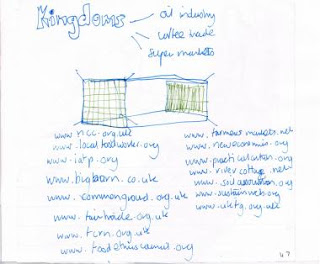 Kingdoms
oil industry
coffee trade
super markets
www.ncc.org.uk
www.localfoodworks.org
www.iatp.org
www.bigbarn.co.uk
www.commonground.org.uk
www.fairtrade.org.uk
www.tcrn.org.uk
www.foodethicscouncil.org
www.farmersmarkets.net
www.neweconomics.org
www.practicalaction.org
www.rivercottage.net
www.soilassociation.org
www.sustainweb.org